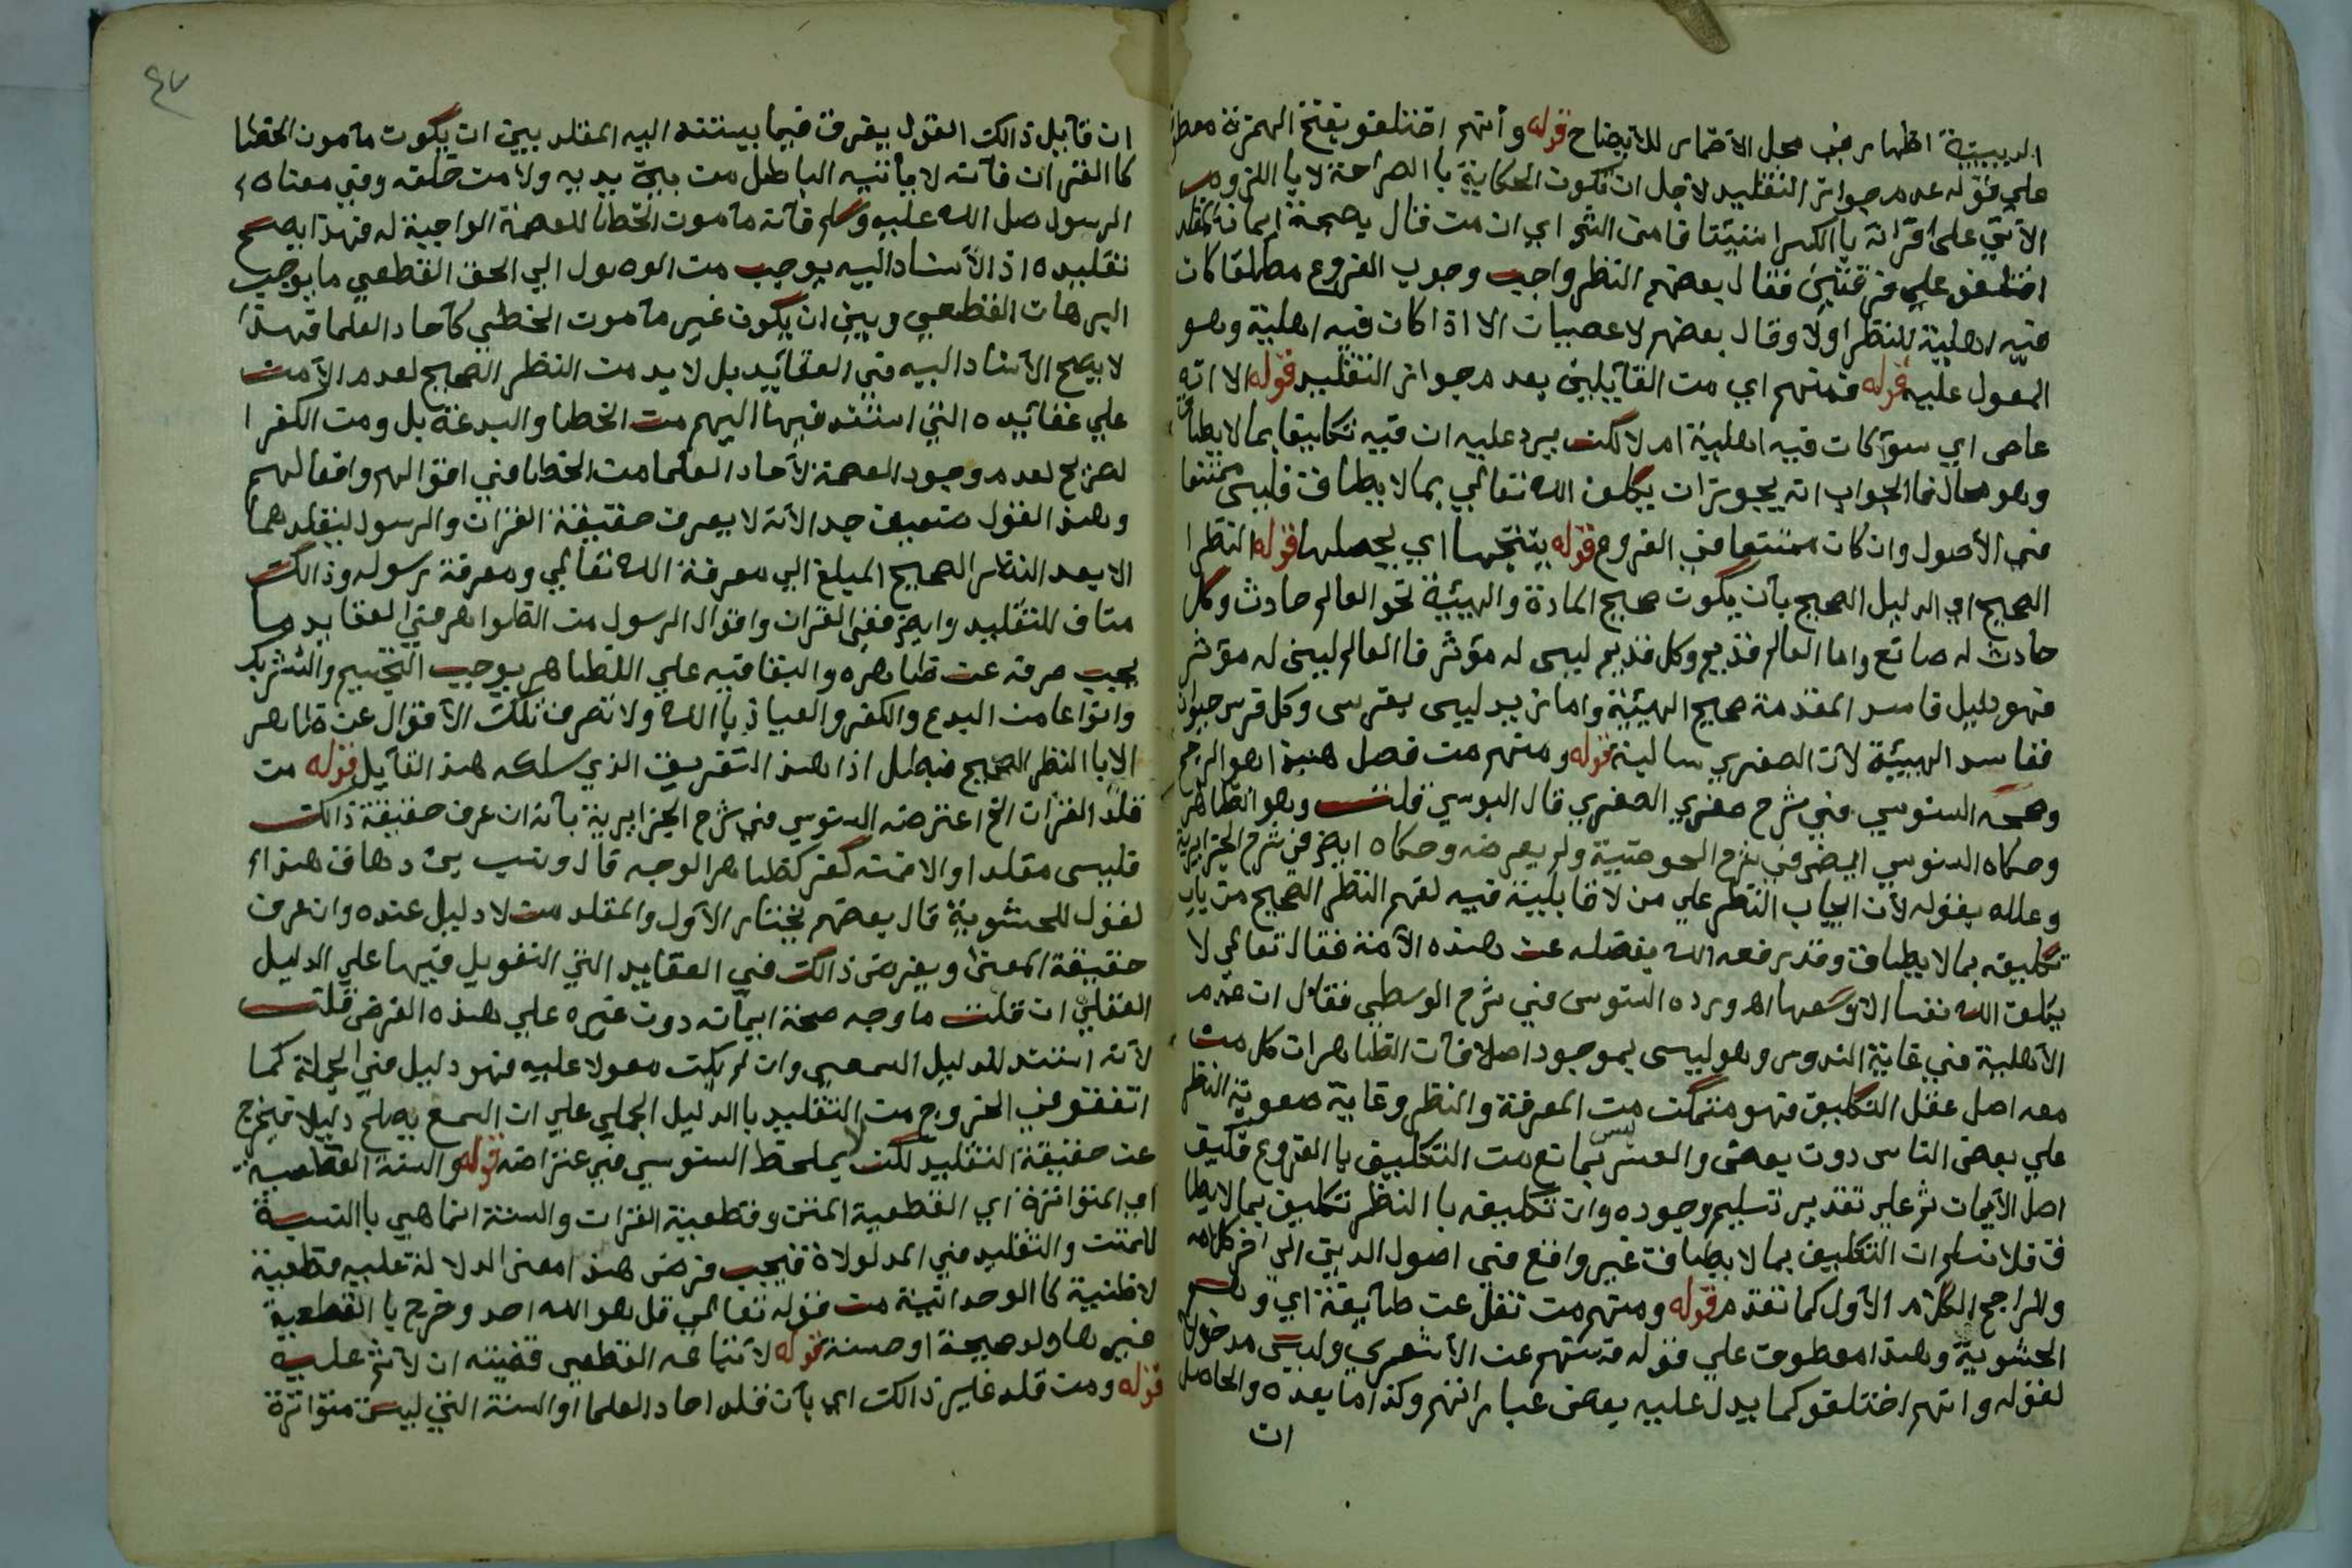 الدينية اظهار في محل الاضمار للايضاح قوله وانهم اختلفو بفتح الهمزة معطوف
علي قوله عدم جواز التقليد لاجل ان تكون الحكاية باالصراحة لا باللزوم
الآتي على اقرانه باالكسر استئنافا من الش اي ان من قال بصحة ايمانه المقلد
اختلفو علي فرقتين فقال بعضهم النظر واجب وجوب الفروع مطلقا كان
فيه اهلية للنظر اولا وقال بعضهم لا عصيان الا اذا كان فيه اهلية وهو
المعول عليه قوله فمنهم اي من القآيلين بعدم جواز التقليد قوله الا انه
عاص اي سوآ كان فيه اهلية ام لا لكن يرد عليه ان فيه تكليفا بما لا يطاق
وهو محال فاالجواب انه يجوز ان يكلف الله تعالي بما لا يطاق فليس ممتنعا
في الأصول وان كان ممتنعا في الفروع قوله ينتجها اي يحصلها قوله النظر
الصحيح اي الدليل الصحيح بأن يكون صحيح المادة والهيئة نحو العالم حادث وكل
حادث له صانع واما العالم قديم وكل قديم ليس له مؤثر فاالعالم ليس له مؤثر
فهو دليل فاسد المقدمة صحيح الهيئة واما زيد ليس بفرس وكل فرس حيوان
ففاسد الهيئة لأن الصغري سالبة قوله ومنهم من فصل هذا هو الراجح
وصححه السنوسي في شرح صغري الصغري قال اليوسي قلت وهو الظاهر
وحكاه السنوسي ايضا في شرح الحوضية ولم يعرضه وحكاه ايضا في شرح الجزايرية
وعلله بقوله لأن ايجاب النظر علي من لا قابلية فيه لفهم النظر الصحيح من باب
تكليفه بما لا يطاق وقد رفعه الله بفضله عن هذه الأمة فقال تعالي لا
يكلف الله نفسا الا وسعها اه ورده السنوسي في شرح الوسطي فقال ان عدم
الأهلية في غاية الندور وهو ليس بموجود اصلا فآن الظاهر ان كل من
معه اصل عقل التكليف فهو متمكن من المعرفة والنظر وغاية صعوبة النظر
علي بعض الناس دون بعض والعسر ليس بمانع من التكليف باالفروع فكيف
اصل الأيمان ثم علي تقدير تسليم وجوده وان تكليفه باالنظر تكليف بما لا يطا
ق فلا نسلم ان التكليف بما لا يطاق غير واقع في اصول الدين الي اخر كلامه
والراجح الكلام الأول كما تقدم قوله ومنهم من نقل عن طآيفة اي وهم
الحشوية وهذا معطوف علي قوله فمنهم عن الأشعري وليس مدخولا
لقوله وانهم اختلفو كما يدل عليه بعض عباراتهم وكذا ما بعده والحاصل
ان
٤٧
ان قآيل ذالك القول يفرق فيما يستند اليه المقلد بين ان يكون مآمون الخطا
كاالقران فآنه لا يأتيه الباطل من بين يديه ولا من خلفه وفي معناه
الرسول صل الله عليه وسلم فآنه مآمون الخطا للعصمة الواجبة له فهذا يصح
تقليده اذ الأستناد اليه يوجب من الوصول الي الحق القطعي ما يوجب
البرهان القطعي وبين ان يكون غير مآمون الخطي كآحاد العلما فهذا
لا يصح الأستناد اليه في العقآئد بل لا بد من النظر الصحيح لعدم الآمن
علي عقآئده التي استند فيها اليهم من الخطا والبدعة بل ومن الكفر ا
لصريح لعدم وجود العصمة لأحاد العلما من الخطا في اقوالهم وافعالهم
وهذ القول ضعيف جدا لأنه لا يعرف حقيقة القران والرسول ليقلدهما
الا بعد النظر الصحيح المبلغ الي معرفة الله تعالي ومعرفة رسوله وذالك
مناف للتقليد وايضا ففي القران واقوال الرسول من الظواهر في العقايد ما
يجب صرفه عن ظاهره والبقا فيه علي الظاهر يوجب التجسيم والتشريك
وانواعا من البدع والكفر والعياذ باالله ولا تصرف تلك الأقوال عن ظاهر
الا باالنظر الصحيح فبطل اذا هذ التفريق الذي سلكه هذ القآيل قوله من
قلد القرآن الخ اعترضه السنوسي في شرح الجزايرية بآنه ان عرف حقيقة ذالك
فليس مقلدا والا فمنه كفر كظاهر الوجه قال ونسب بن دهاق هذا ا
لقول للحشوية قال بعضهم نختار الأول والمقلد من لا دليل عنده وان عرف
حقيقة المعني ويفرض ذالك في العقايد التي التعويل فيها علي الدليل
العقلي ان قلت ما وجه صحة ايمآنه دون غيره علي هذه الفرض قلت
لأنه استند للدليل السمعي وان لم يكن معولا عليه فهو دليل في الجملة كما
اتفقو في الخروج من التقليد باالدليل الجملي علي ان السمع يصلح دليلا فيخرج
عن حقيقة التقليد لكن لا يملحظ السنوسي في عتراضه قوله والسنة القطعية
اي المتواترة اي القطعية المتن وقطعية القران والسنة انما هي باالنسبة
للمتن والتقليد في المدلولاة فيجب فرض هذ امعني الدلالة عليه قطعية
لا ظنية كاالوحدانية من قوله تعالي قل هو الله احد وخرج باالقطعية
غيرها ولو صحيحة او حسنة قوله لأتباعه القطعي قضيته ان لا اثم عليه
قوله ومن قلد غاير ذالك اي بآن قلد احاد العلما او السنة التي ليسة متواترة